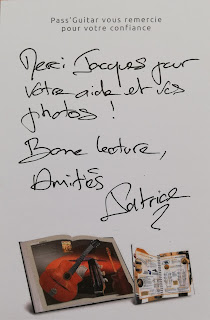 Pass'Guitar vous remercie
pour votre confiance
Merci Jacques pour
votre aide et vos
photos !
Bonne lecture,
Amitiés
Patrice